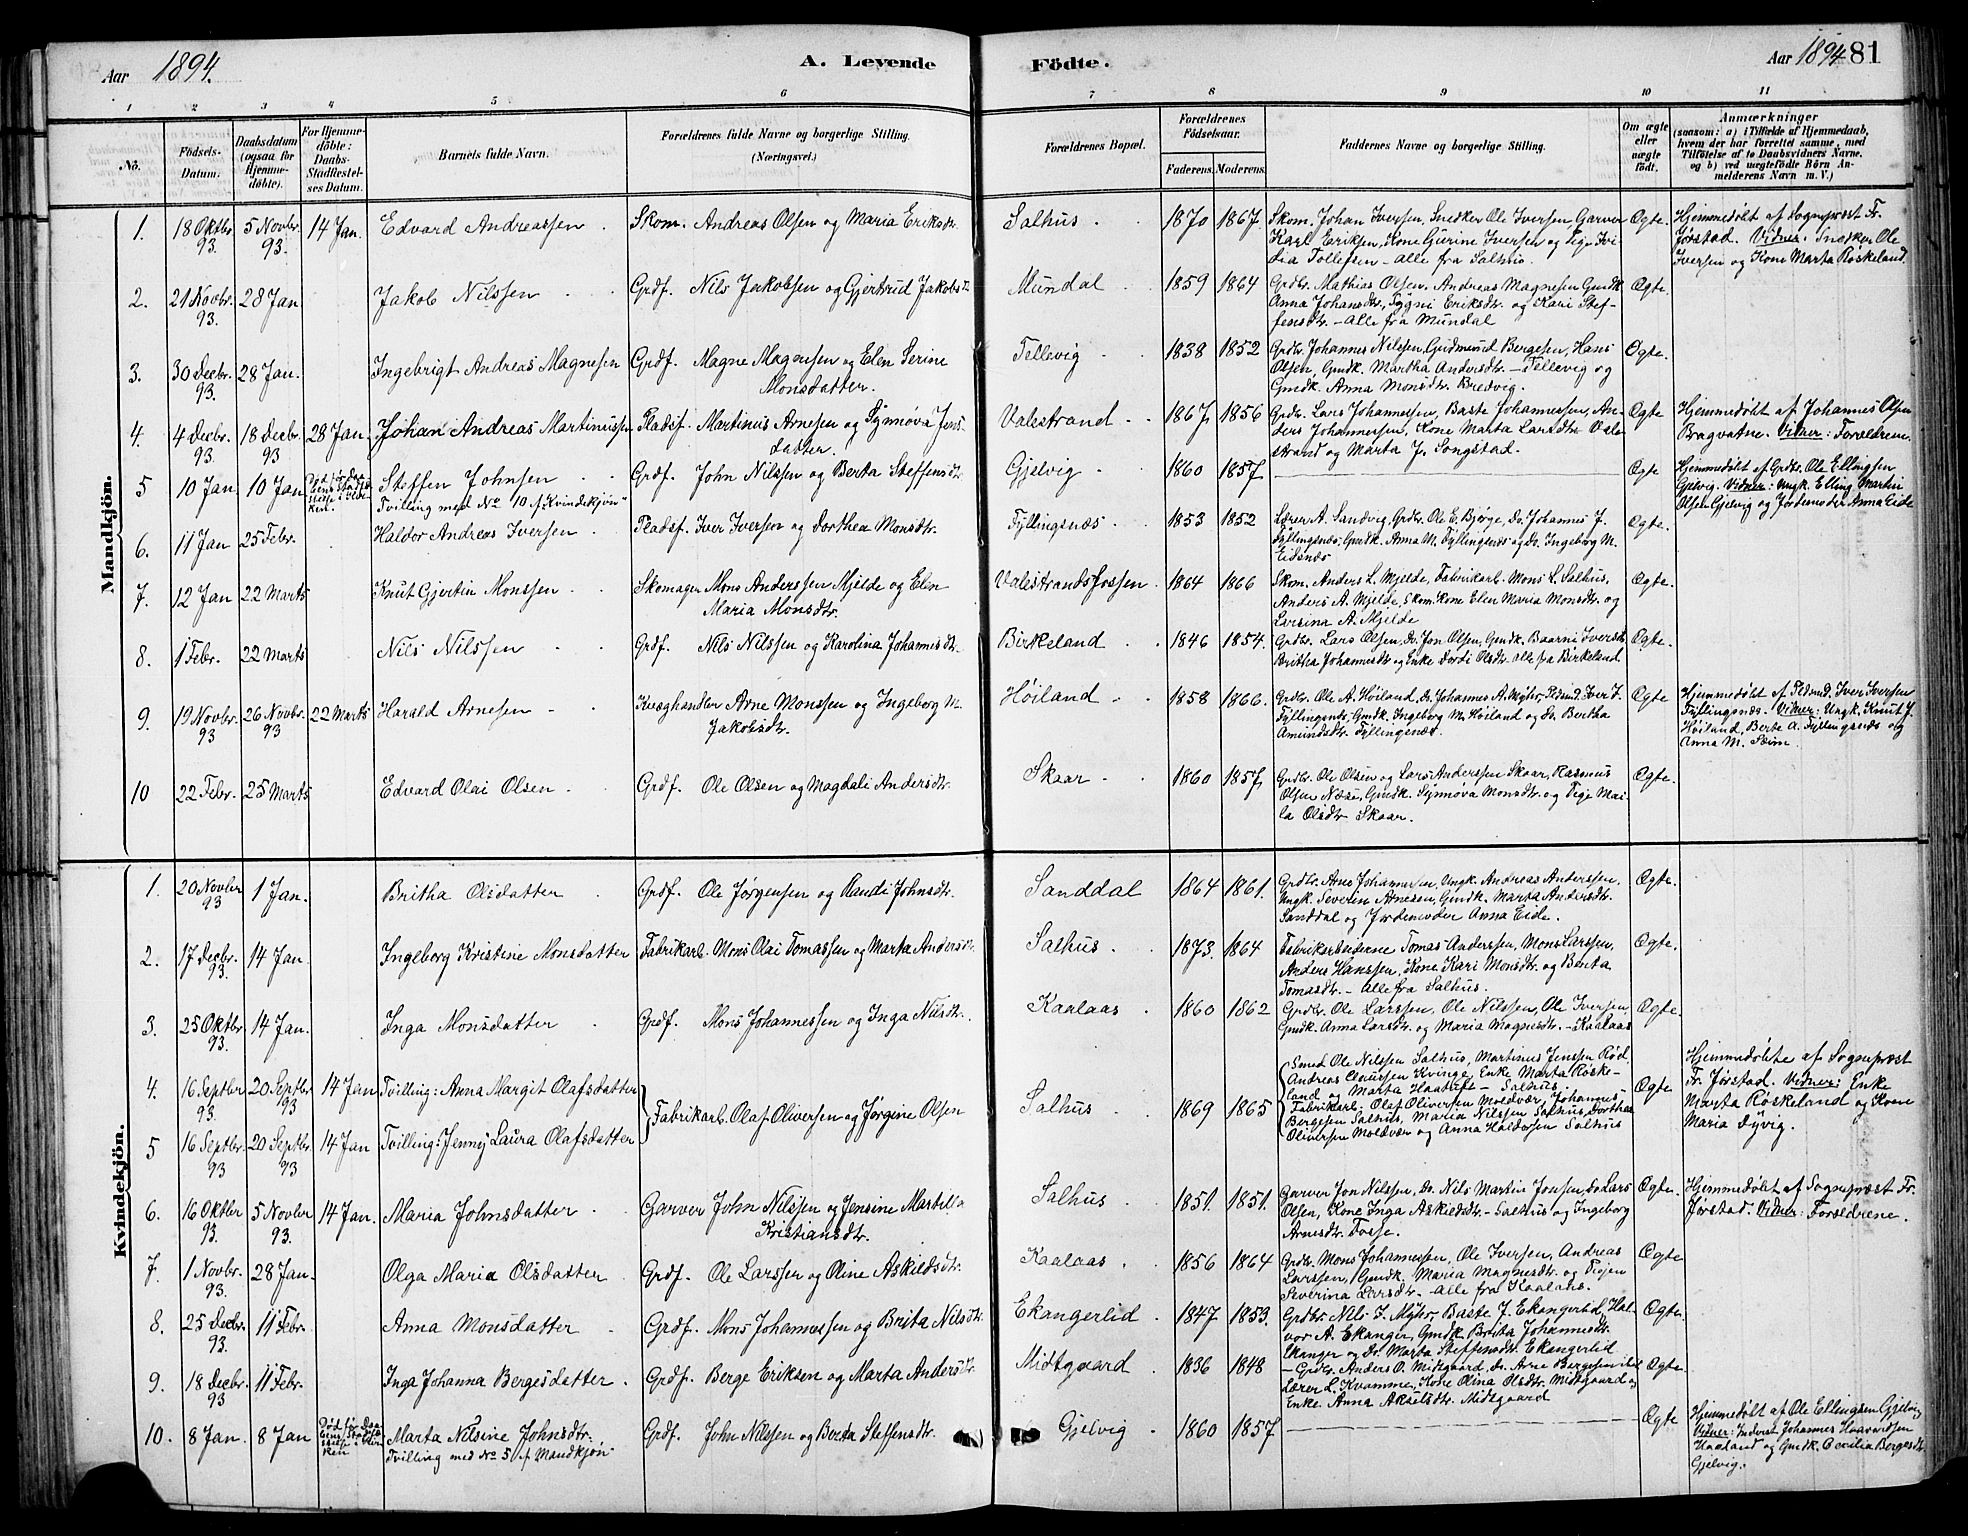 Aar 1894.
A. Levende
Födte.
Aar 1894 81
1 2 3 4 5 6 7 8 9 10 11
No.
Födsels-Datum.
Daabsdatum (ogsaa for Hjemme-döbte).
For Hjemme-döbte: Daabs-Stadfæstel-ses Datum.
Barnets fulde Navn.
Forældrenes fulde Navne og borgerlige Stilling. (Næringsvei.)
Forældrenes Bopæl.
Forældrenes Födselsaar.
Faderens. Moderens.
Faddernes Navne og borgerlige Stilling.
Om ægte eller uægte födt.
Anmærkninger
(saasom: a) i Tilfælde af Hjemmedaab, hvem der har forrettet samme, med Tilföielse af to Daabsvidners Navne, og b) ved uægtefödte Börn An-melderens Navn m. V.)
Mandkjön.
1. 18 Oktbr. 93. 5 Novbr. 93. 14 Jan. Edvard Andreassen Skom. Andreas Olsen og Maria Eriksdtr. Salhus 1870 1867 Skom. Johan Iversen, Snedker Ole Iversen, Garver Karl Eriksen, Kone Gurine Iversen og Pige Tollefsen – alle fra Salhus. Ægte Hjemmedøbt af Sognepræst Fr. Jørstad. Vidner: Snedker Ole Iversen og Kone Marta Røskeland.
2. 21 Novbr. 93. 28 Jan Jakob Nilssen Grdf. Nils Jakobsen og Gjertrud Jakobsdtr Mundal 1859 1864 Grdbr. Mathias Olsen, Andreas Magnesen, Gmdk. Anna Johansdtr, Eriksdtr. og Kari Steffensdtr. – alle fra Mundal Ægte.
3. 30 Decbr. 93. 28 Jan. Ingebrigt Andreas Magnesen Grdf. Magne Magnesen og Elen Serine Monsdatter. Tellevig 1838 1852 Grdbr. Johannes Nilssen, Gudmund Bergesen, Hans Olsen, Gmdk. Martha Andersdtr. – Tellevig og Gmdk. Anna Monsdtr. Bredvig. Ægte.
4. 4 Decbr. 93 18 Decbr. 93 28 Jan. Johan Andreas Martinussen Pladsf. Martinus Arnesen og Synnøva Jensdatter. Valestrand 1867 1856 Grdbr. Lars Johannessen, Baste Johannessen, Anders Johannessen, Kone Marta Larsdtr. Valestrand og Marta J. Songstad. Ægte Hjemmedøbt af Johannes Olsen Bragvatne. Vidner: Forældrene.
5 10 Jan 10 Jan Død før Daabens Stadfæstelse i Kirken. Steffen Johnsen Tvilling med No 10 af "Kvindekjøn" Grdf. John Nilssen og Berta Steffensdtr Gjelvig 1860 1857 Ægte Hjemmedøbt af Grdbr. Ole Ellingsen Gjelvig. Vidner: Ungk. Elling Martin Olsen Gjelvig og Jordemoder Anna Eide
6. 11 Jan 25 Febr. Haldor Andreas Iversen Pladsf. Iver Iversen og Dorthea Monsdtr. Fyllingsnæs 1853 1852 Lærer A. Sandvig, Grdbr. Ole E. Bjørge, Do. Johannes J. Fyllingsnæs, Gmdk. Anna M. Fyllingsnæs og Do. Ingeborg M. Eidsnæs Ægte.
7. 12 Jan 22 Marts Knut Gjertin Monssen Skomager Mons Anderssen Mjelde og Elen Maria Monsdtr. Valestrandsfossen 1864 1866 Skom. Anders L. Mjelde, Fabrikarb. Mons L. Salhus, Anders A. Mjelde, Skom. Kone Elen Maria Monsdtr. og Larsina A. Mjelde Ægte.
8. 1 Febr. 22 Marts Nils Nilssen Grdf. Nils Nilssen og Karolina Johannesdtr. Birkeland 1846 1854. Grdbr. Lars Olsen, Do. Jon Olsen, Gmdk. Baarni Iversdtr. Britha Johannesdtr og Enke Dordi Olsdtr. alle fra Birkeland Ægte.
9. 19 Novbr. 93 26 Novbr. 93 22 Marts Harald Arnesen Kvæghandler Arne Monssen og Ingeborg M. Jakobsdtr. Høiland 1858 1866. Grdbr. Ole A. Høiland, Do. Johannes A. Myhr, Pldsmd. Iver I. Fyllingsnæs, Gmdk. Ingeborg M. Høiland og Do. Bertha Amundsdtr. Fyllingsnæs Ægte Hjemmedøbt af Pldsmd. Iver Iversen Fyllingsnæs. Vidner: Ungk. Knut J. Høiland, Berte A. Fyllingsnæs og Anna M. Seim.
10 22 Febr. 25 Marts Edvard Olai Olsen Grdf. Ole Olsen og Magdali Andersdtr. Skaar 1860 1857 Grdbr. Ole Olsen og Lars Anderssen Skaar, Rasmus Olsen Næse, Gmdk. Synnova Monsdtr. og Pige Olsdtr Skaar. Ægte.
Kvindekjön.
1. 20 Novbr 93 1 Jan. Britha Olsdatter Grdf. Ole Jørgensen og Randi Johnsdtr. Sanddal 1864 1861. Grdbr. Arne Johannesen, Ungk. Andreas Anderssen, Ungk. Severin Arnesen, Gmdk. Marta Andersdtr. Sanddal og Jordemoder Anna Eide. Ægte.
2. 17 Decbr. 93. 14 Jan Ingeborg Kristine Monsdatter Fabrikarb. Mons Olai Tomassen og Marta Andersdtr. Salhus 1873. 1864 Fabrikarbeiderne Tomas Anderssen, Mons Larssen, Anders Hanssen, Kone Kari Monsdtr. og Berta Tomasdtr. – alle fra Salhus. Ægte.
3. 25 Oktbr. 93. 14 Jan. Inga Monsdatter Grdf. Mons Johannessen og Inga Nilsdtr. Kaalaas 1860 1862 Grdbr. Ole Larssen, Ole Nilssen, Ole Iversen, Gmdk. Anna Larsdtr. og Maria Magnesdtr. – Kaalaas Ægte.
4. 16 Septbr 93. 20 Septbr 93 14 Jan Tvilling: Anna Margit Olafsdatter Fabrikarb. Olaf Oliversen og Jørgine Olsen Salhus 1869 1865 Smed Ole Nilssen Salhus, Martinus Jenssen Rød, Andreas Kvinge, Enke Marta Røskeland og Marta – Salhus. Fabrikarb. Olaf Oliversen Moldvær, Johannes Bergesen Salhus, Maria Nilssen Salhus, Dorthea Oliversen Moldvær og Anna Haldorsen Salhus Ægte Hjemmedøbte af Sognepræst Fr. Jørstad. Vidner: Enke Marta Røskeland og Kone Maria Dyvig.
5 16 Septbr. 93 20 Septbr. 93 14 Jan Tvilling: Jenny Laura Olafsdatter
6. 16 Oktbr 93. 5 Novbr 93. 14 Jan. Maria Johnsdatter Garver John Nilssen og Jensine Martilla Kristiansdtr. Salhus 1851. 1851. Garver Jon Nilssen, Do. Nils Martin Jonsen, Do Lars Olsen, Kone Inga Askildsdtr. – Salhus og Ingeborg Arnesdtr. Fosse. Ægte. Hjemmedøbt af Sognepræst Fr. Jørstad. Vidner: Forældrene.
7. 1 Novbr. 93. 28 Jan. Olga Maria Olsdatter Grdf. Ole Larssen og Oline Askildsdtr. Kaalaas 1856 1864 Grdbr. Mons Johannessen, Ole Iversen, Andreas Larssen, Gmdk. Maria Magnesdtr. og Pigen Severina Larsdtr. – alle fra Kaalaas. Ægte
8. 25 Decbr. 93. 11 Febr. Anna Monsdatter Grdf. Mons Johannessen og Brita Nilsdtr. Ekangerlid 1847 1853. Grdbr. Nils J. Myhr, Baste J. Ekangerlid, Halvor A. Ekanger, Gmdk. Brita Johannesdtr. Ekanger og Do. Marta Steffensdtr. Ekangerlid Ægte.
9. 18 Decbr. 93 11 Febr. Inga Johanna Bergesdatter Grdf. Berge Eriksen og Marta Andersdtr Midtgaard 1836 1848 – Grdbr. Anders O. Midtgaard, Do. Arne Bergesen ibd. Lærer L. Kvamme, Kone Olina Olsdtr. Midtgaard og Enke Anna Akselsdtr. Midtgaard Ægte.
10. 8 Jan. 8 Jan Død før Daabens Stadfæstelse i Kirken Marta Nilsine Johnsdtr. Tvilling med No 5 af Mandkjøn Grdf. John Nilssen og Berta Steffensdtr. Gjelvig 1860 1857 Ægte Hjemmedøbt af Ole Ellingsen Gjelvig Vidner: Inderst Johannes Haavardsen Haaland og Gmdk. Cecilia Bergesdtr Gjelvig.